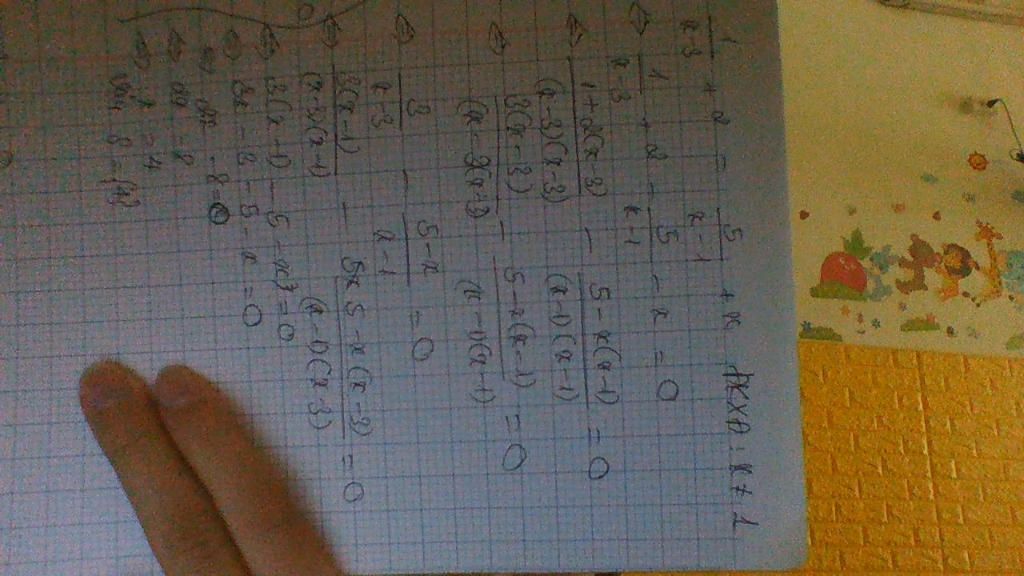 1/(x-3) + 2 = 5/(x-1) + x ĐKXĐ: x ≠ 1
⇔ 1/(x-3) + 2 - 5/(x-1) - x = 0
⇔ (1+2(x-3))/((x-3)(x-3)) - (5-x(x-1))/((x-1)(x-1)) = 0
⇔ (3(x-3))/((x-3)(x-1)) - (5-x(x-1))/((x-1)(x-1)) = 0
⇔ 3/(x-3) - (5-x)/(x-1) = 0
⇔ (3(x-1))/((x-1)(x-1)) - (5-x(x-3))/((x-1)(x-3)) = 0
⇔ 3(x-1) - 5 - x) = 0
⇔ 3x - 3 - 5 - x = 0
⇔ 2x - 8 = 0
⇔ 2x = 8
⇔ x = 4
Vậy S = {4}